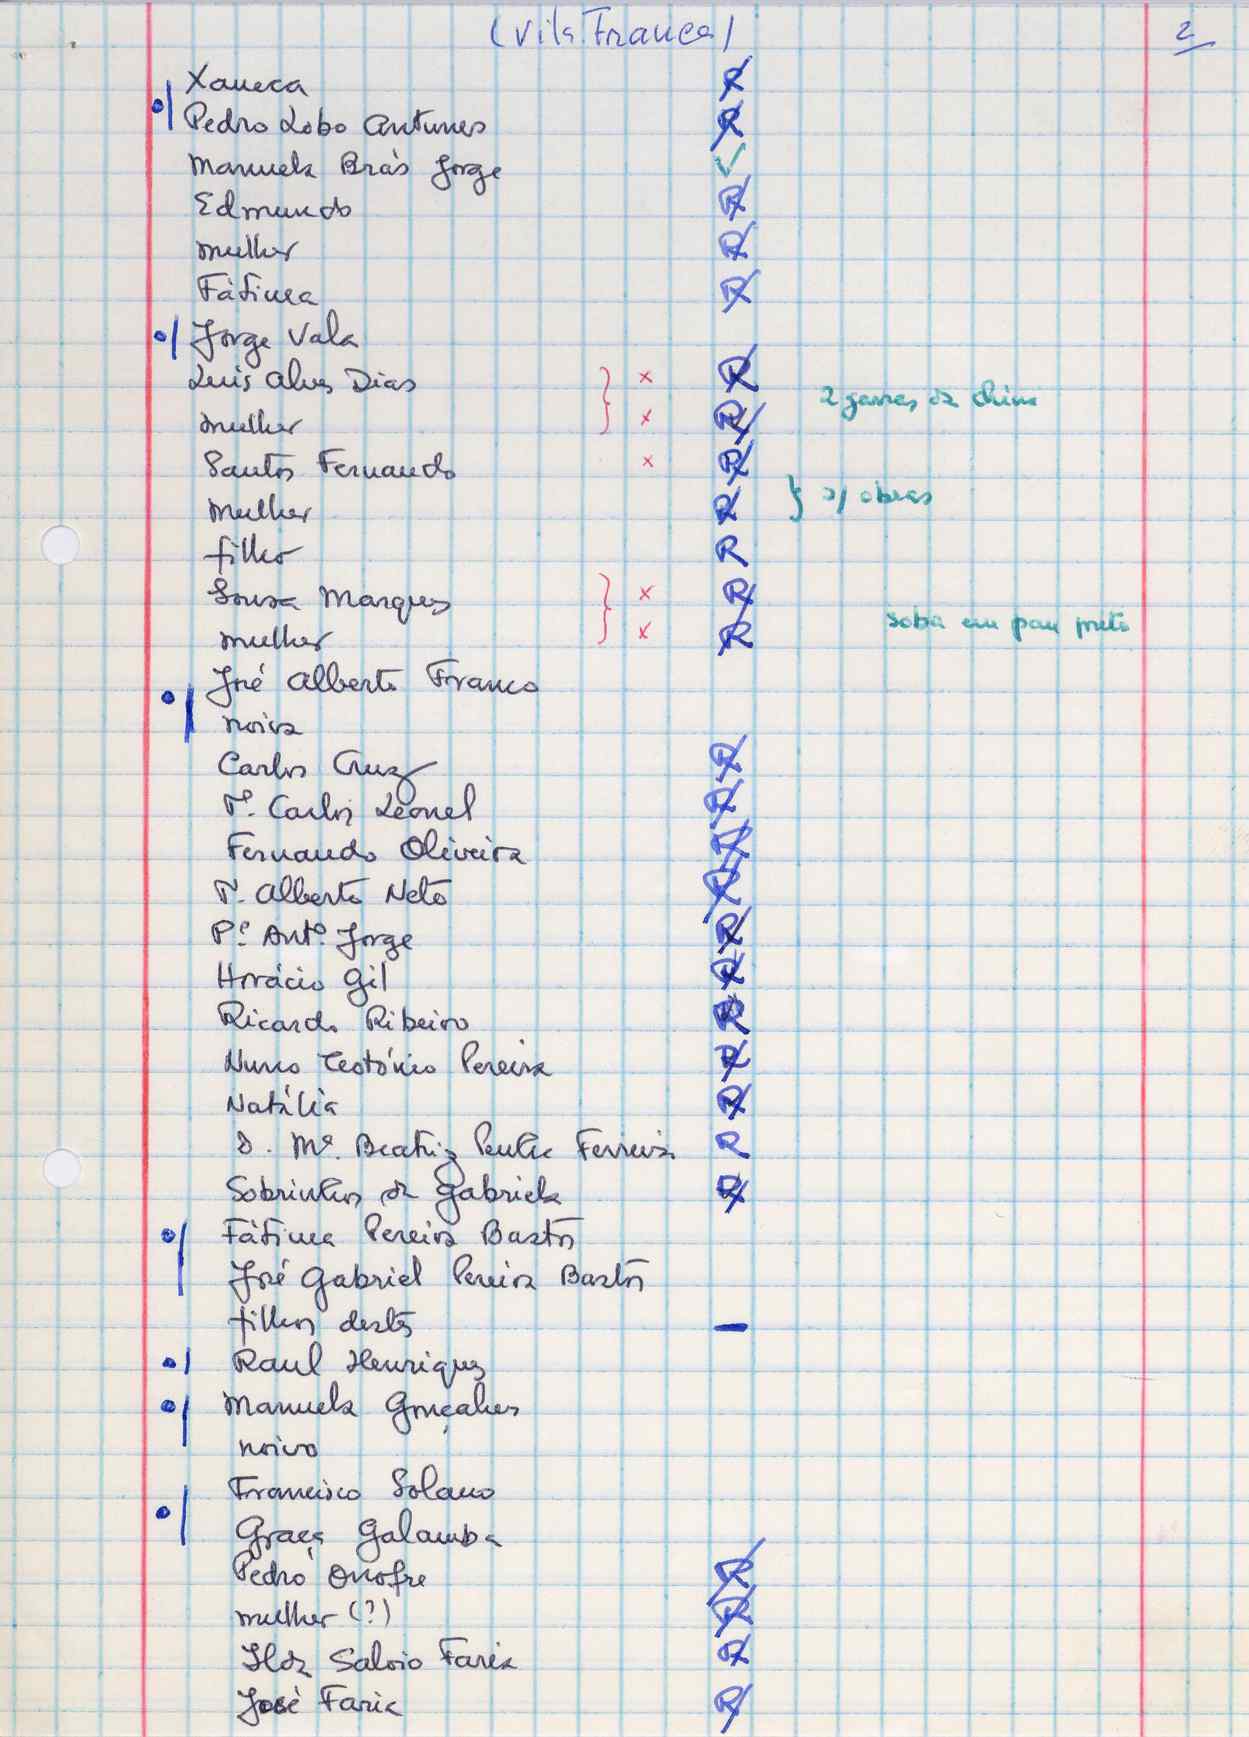 (Vila Franca) 2
Xaneca R
Pedro Lobo Antunes R
Manuela Brás Jorge ✓
Edmundo R
mulher R
Fátima R
Jorge Vala
Luis Alves Dias } x R 2 jarras da China
mulher x R
Santos Fernando x R
mulher R } s/ obras
filho R
Sousa Marques } x R soba em pau preto
mulher x R
José Alberto Franco
noiva
Carlos Cruz R
Pe. Carlos Leonel R
Fernando Oliveira R
P. Alberto Neto R
Pe. Antº. Jorge R
Horácio Gil R
Ricardo Ribeiro R
Nuno Teotónio Pereira R
Natália R
D. Mª. Beatriz Ferreira R
Sobrinhos da Gabriela R
Fátima Pereira Bastos
José Gabriel Pereira Bastos
filhos destes —
Raul Henriques
Manuela Gonçalves
noivo
Francisco Solano
Graça Galamba
Pedro Onofre R
mulher (?) R
Ilda Salvio Faria R
José Faria R